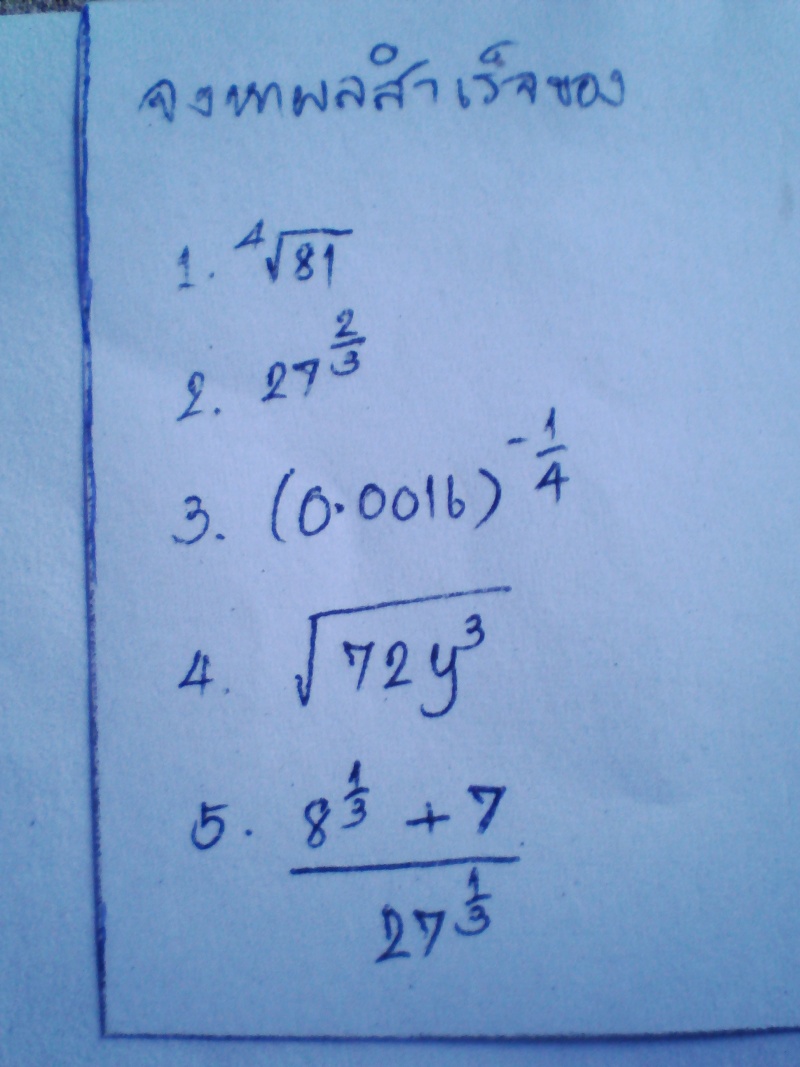 จงหาผลสำเร็จของ
1. ⁴√81
2. 27^(2/3)
3. (0.0016)^(-1/4)
4. √(72y³)
5. (8^(1/3) + 7) / 27^(1/3)